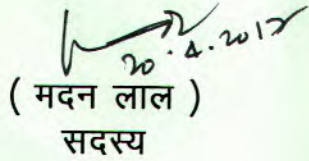 20.4.2012
( मदन लाल )
सदस्य